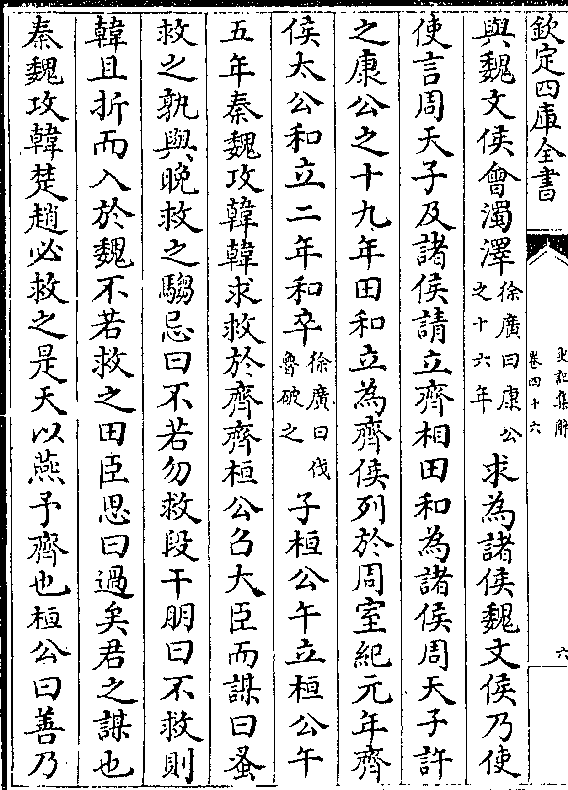 欽定四庫全書
史記集解
卷四十六
六
與魏文侯會濁澤徐廣曰康公之十六年求為諸侯魏文侯乃使
使言周天子及諸侯請立齊相田和為諸侯周天子許
之康公之十九年田和立為齊侯列於周室紀元年齊
侯太公和立二年和卒徐廣曰伐魯破之子桓公午立桓公午
五年秦魏攻韓韓求救於齊齊桓公召大臣而謀曰蚤
救之孰與晚救之騶忌曰不若勿救段干朋曰不救則
韓且折而入於魏不若救之田臣思曰過矣君之謀也
秦魏攻韓楚趙必救之是天以燕予齊也桓公曰善乃